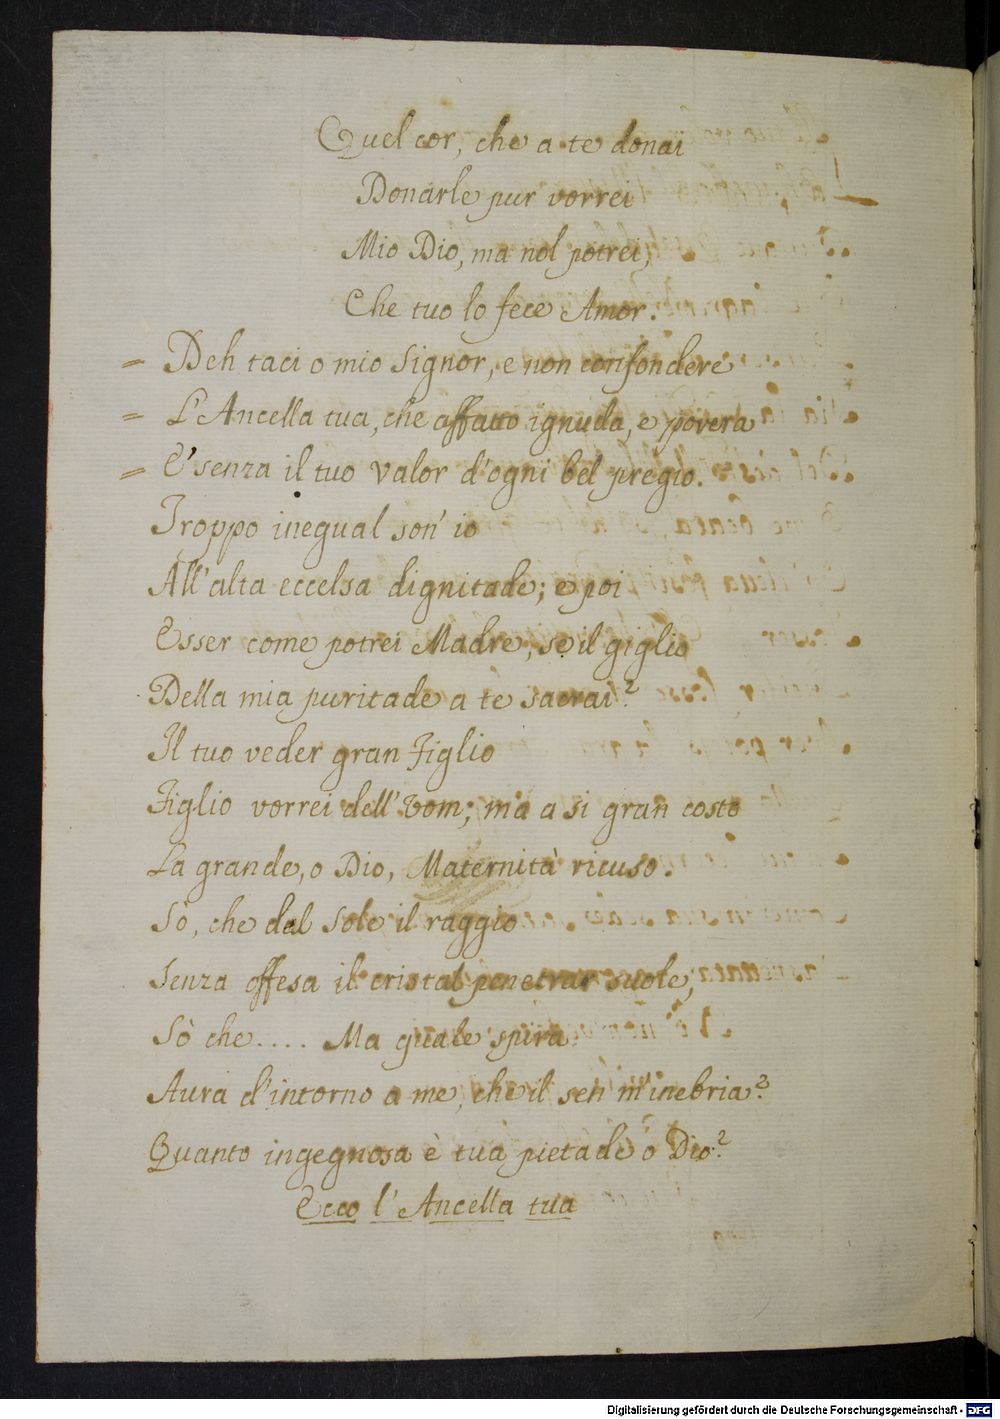 Quel cor, che a te donai
Donarle pur vorrei
Mio Dio, ma nol potrei,
Che tuo lo fece Amor.
= Deh taci o mio Signor, e non confondere
= L'Ancella tua, che affatto ignuda, e povera
= E' senza il tuo valor d'ogni bel pregio.
Troppo inegual son' io
All'alta eccelsa dignitade; e poi
Esser come potrei Madre, se il giglio
Della mia puritade a te sacrai?
Il tuo veder gran Figlio
Figlio vorrei dell'Vom; ma a si gran costo
La grande, o Dio, Maternità ricuso.
Sò, che dal Sole il raggio
Senza offesa il cristal penetrar suole,
Sò che.... Ma quale spira
Aura d'intorno a me, che il sen m'inebria?
Quanto ingegnosa è tua pietade o Dio?
Ecco l'Ancella tua
Digitalisierung gefördert durch die Deutsche Forschungsgemeinschaft - DFG